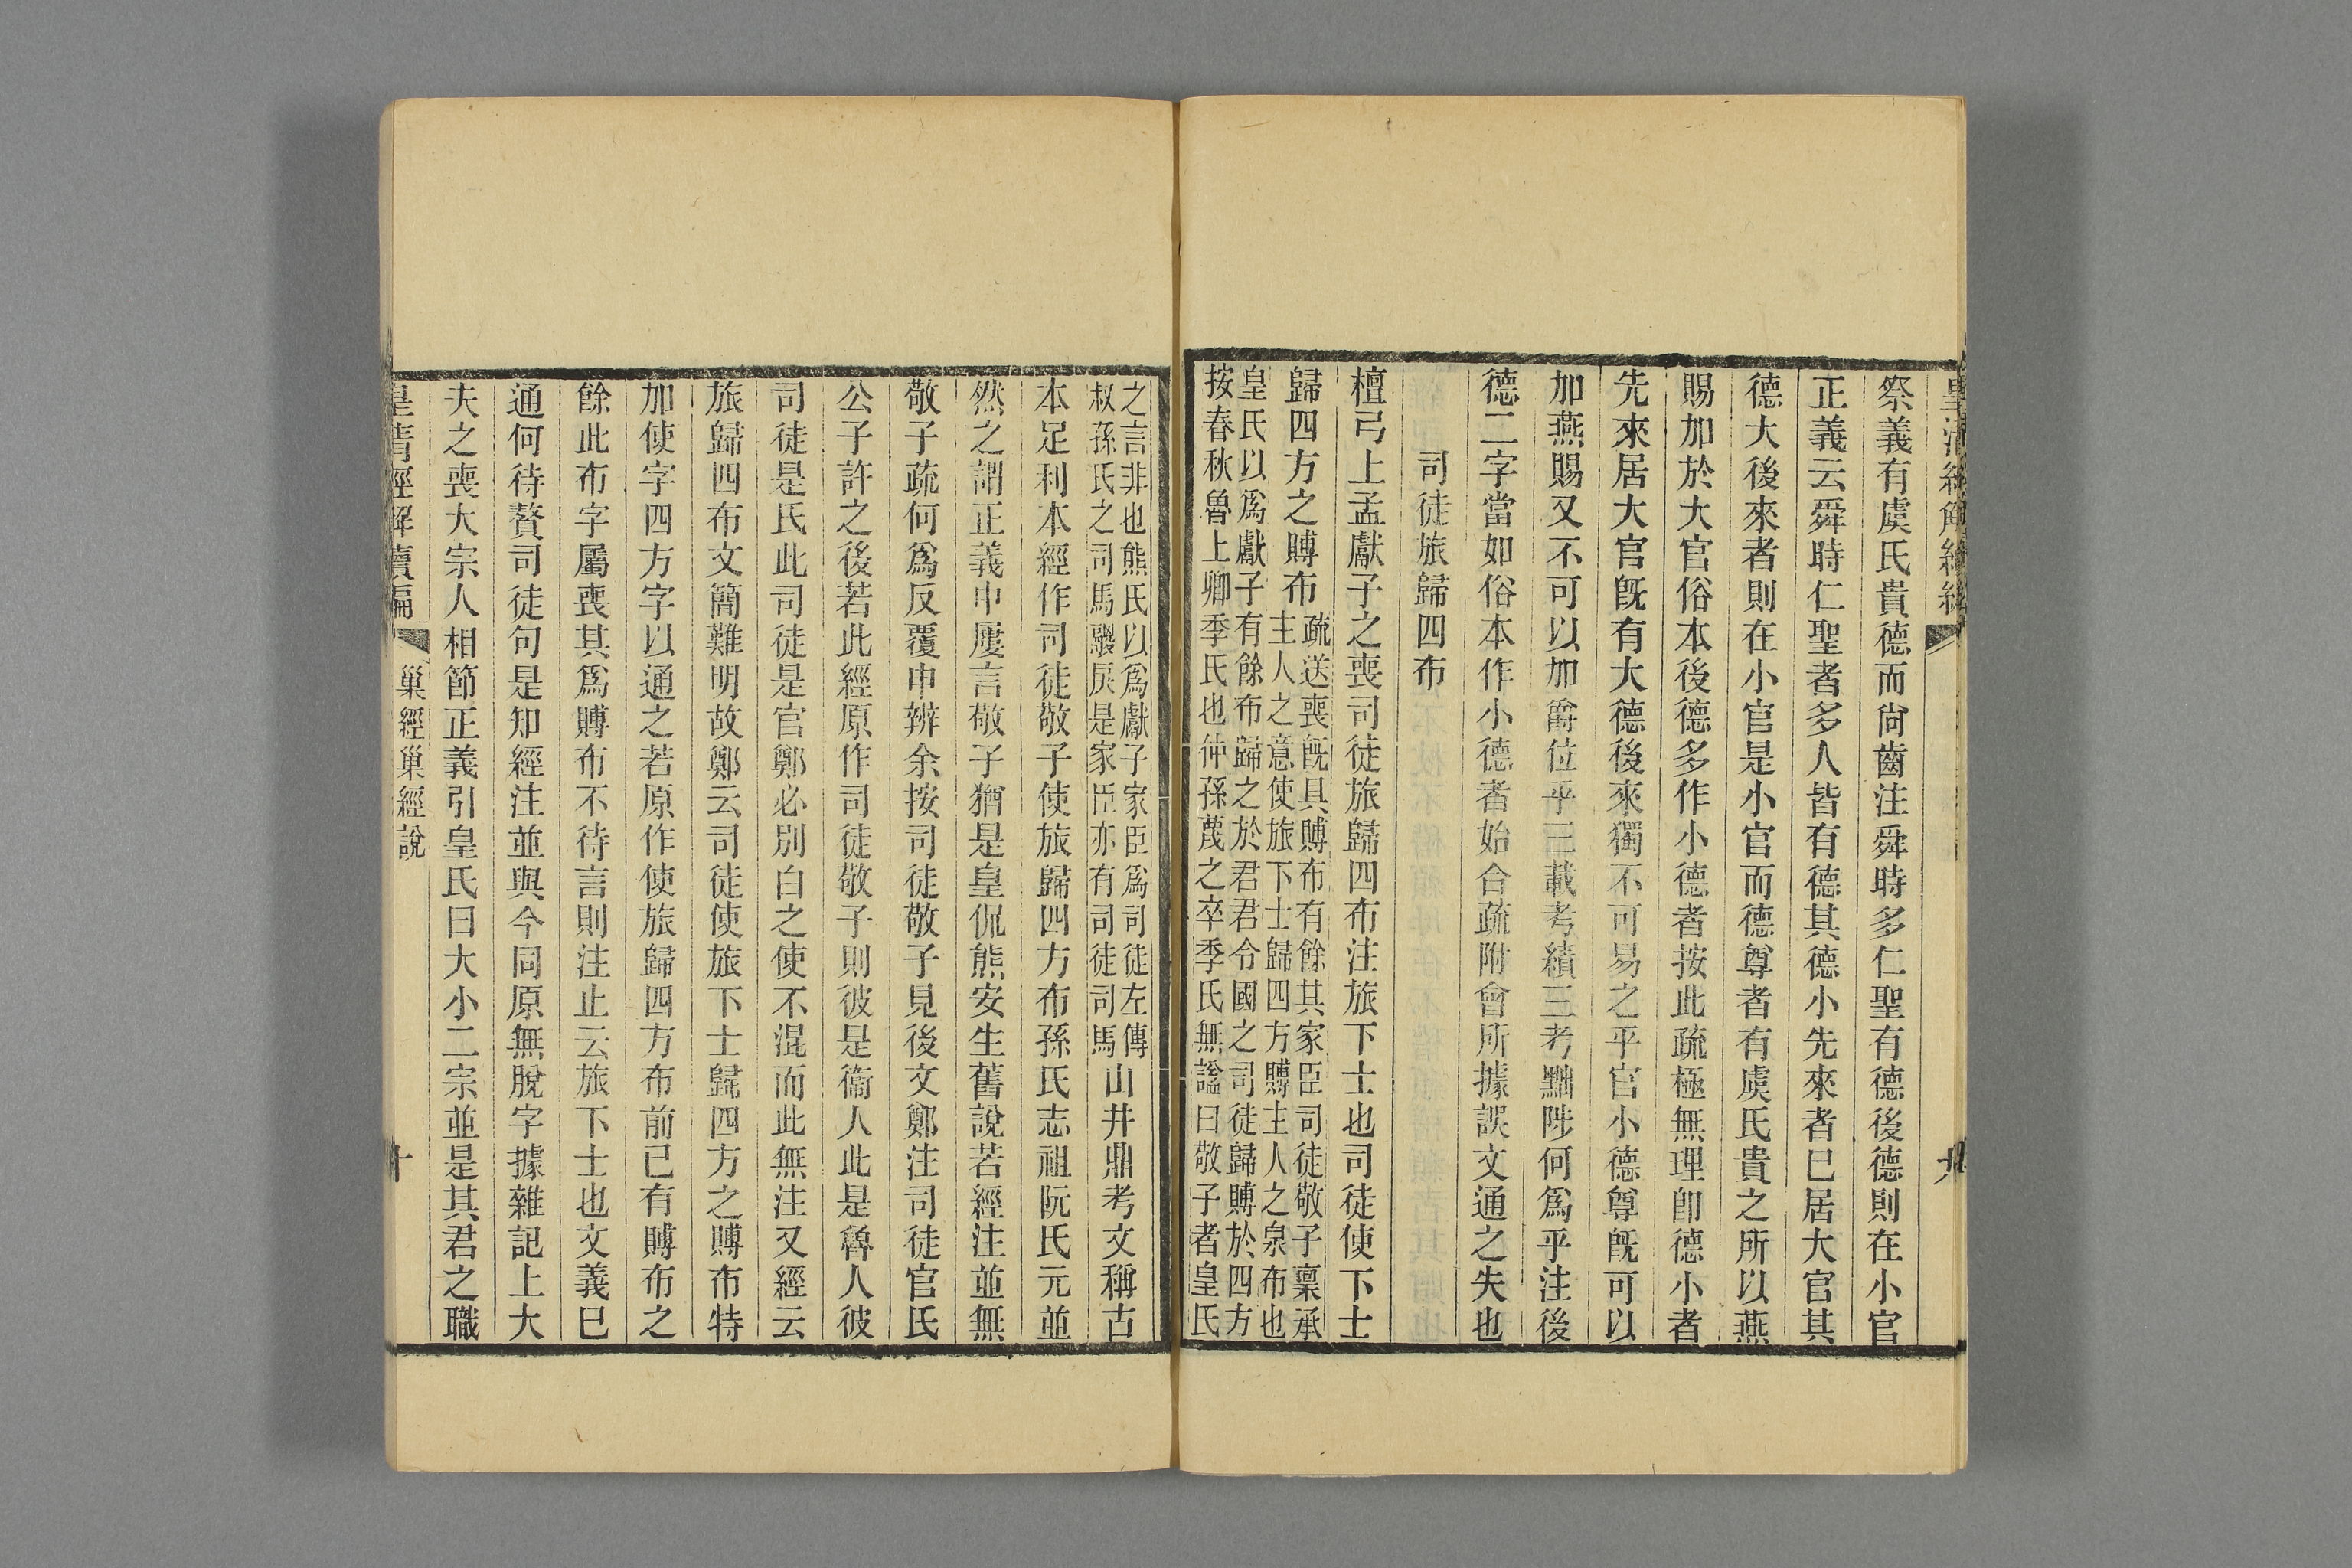 祭義有虞氏貴德而尙齒注舜時多仁聖有德後德則在小官
正義云舜時仁聖者多人皆有德其德小先來者巳居大官其
德大後來者則在小官是小官而德尊者有虞氏貴之所以燕
賜加於大官俗本後德多作小德者按此疏極無理卽德小者
先來居大官旣有大德後來獨不可易之乎官小德尊旣可以
加燕賜又不可以加爵位乎三載考績三考黜陟何爲乎注後
德二字當如俗本作小德者始合疏附會所據誤文通之失也
司徒旅歸四布
檀弓上孟獻子之喪司徒旅歸四布注旅下士也司徒使下士
歸四方之賻布
疏送喪旣具賻布有餘其家臣司徒敬子稟承
主人之意使旅下士歸四方賻主人之泉布也
皇氏以爲獻子有餘布歸之於君君令國之司徒歸賻於四方
按春秋魯上卿季氏也仲孫蔑之卒季氏無謚曰敬子者皇氏
之言非也熊氏以爲獻子家臣爲司徒左傳
叔孫氏之司馬鬷戾是家臣亦有司徒司馬
山井鼎考文稱古
本足利本經作司徒敬子使旅歸四方布孫氏志祖阮氏元並
然之謂正義中屢言敬子猶是皇侃熊安生舊說若經注並無
敬子疏何爲反覆申辨余按司徒敬子見後文鄭注司徒官氏
公子許之後若此經原作司徒敬子則彼是衞人此是魯人彼
司徒是氏此司徒是官鄭必別白之使不混而此無注又經云
旅歸四布文簡難明故鄭云司徒使旅下士歸四方之賻布特
加使字四方字以通之若原作使旅歸四方布前巳有賻布之
餘此布字屬喪其爲賻布不待言則注止云旅下士也文義巳
通何待贅司徒句是知經注並與今同原無脫字據雜記上大
夫之喪大宗人相節正義引皇氏曰大小二宗並是其君之職
皇淸經解續編
巢經巢經說
十